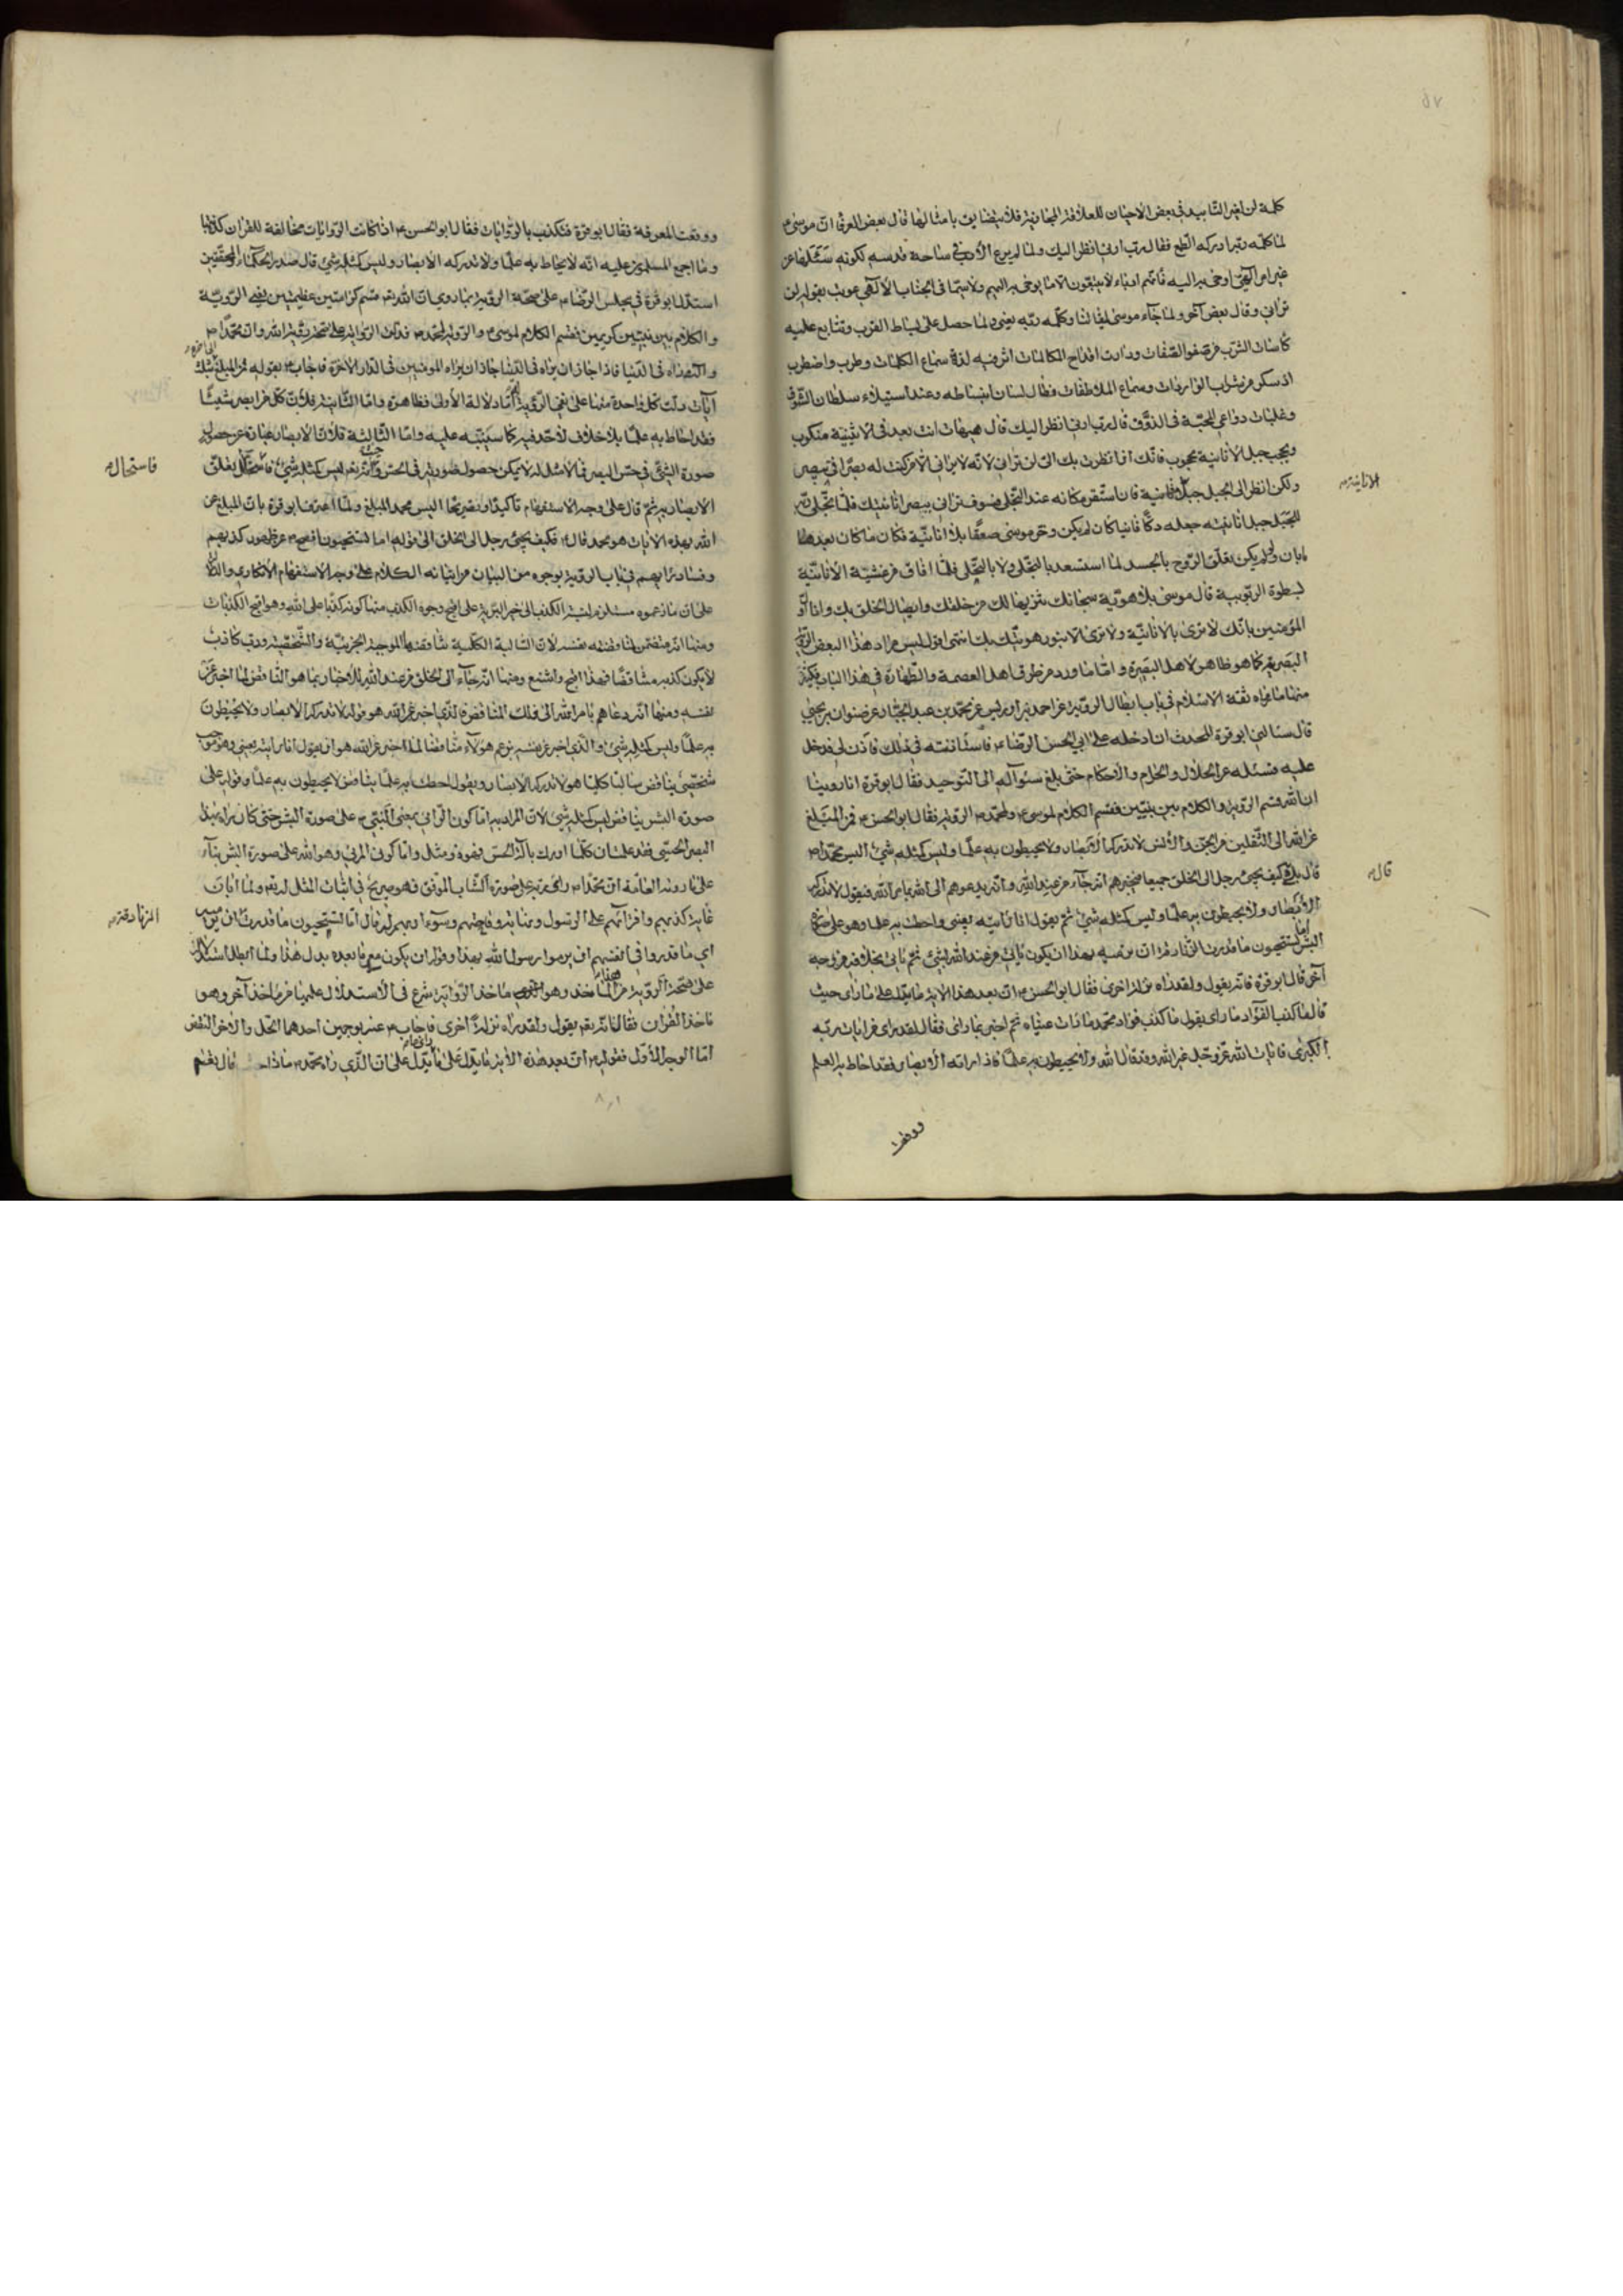 كلمة لن لغير التأبيد في بعض الاحيان للعلاقة المجازية فلا يتضايق بامثالها قال بعض العرفا ان موسى ع
لما كلمه ربه ادركه الطمع فقال رب ارني انظر اليك ولما لم يرع الادب في ساحة قدسه لكونه
غير امر الهي اوحى به اليه فانهم انبياء لا ينطقون الا بما يوحى به اليهم ولا سيما في الجناب الالهي عوتب بقوله لن
تراني وقال بعض آخر ولما جاء موسى لميقاتنا وكلمه ربه يعني لما حصل على بساط القرب وتتابع عليه
كاسات الشرب من صفو الصفات ودارت اقداح المكالمات اثر فيه لذة سماع الكلمات وطرب واضطرب
اذ سكر من شراب الواردات وسماع الملاطفات فطال لسان انبساطه وعند استيلاء سلطان الشوق
وغلبات دواعي المحبة في الذوق قال رب ارني انظر اليك قال هيهات انت بعد في الاثنينية منكوب
وبحجب جبل الانانية محجوب فانك اذا نظرت بك الي لن تراني لانه لا يراني الا من كنت له بصرا في يبصر
ولكن انظر الى الجبل جبل الانانية فان استقر مكانه عند التجلي فسوف تراني ببصر انانيتك فلما تجلى ربه
للجبل جبل انانيته جعله دكا فانيا كان لم يكن وخر موسى صعقا بلا انانية فكان ما كان بعد
بان ولو لم يكن تعلق الروح بالجسد لما استسعد بالتجلي ولا بالتجلي فلما افاق من غشية الانانية
لسطوة الربوبية قال موسى بلا هوية سبحانك تنزيها لك من خلقك واتصال الخلق بك وانا اول
المؤمنين بانك لا ترى بالانانية ولا ترى الا بنور هويتك بك انتهى اقول ليس مراد هذا البعض الرؤية
البصرية كما هو ظاهر لاهل البصيرة واما ما ورد من طرق اهل العصمة والطهارة في هذا الباب فكثيرة
منها ما رواه ثقة الاسلام في باب ابطال الرؤية عن احمد بن ادريس عن محمد بن عبد الجبار عن صفوان بن يحيى
قال سئالني ابو قرة المحدث ان ادخله على ابي الحسن الرضا ع فاستاذنته في ذلك فاذن لي فدخل
عليه فسئله عن الحلال والحرام والاحكام حتى بلغ سئواله الى التوحيد فقال ابو قرة انا روينا
ان الله قسم الرؤية والكلام بين نبيين فقسم الكلام لموسى ع ولمحمد ص الرؤية فقال ابو الحسن ع فمن المبلغ
عن الله الى الثقلين من الجن والانس لا تدركه الابصار ولا يحيطون به علما وليس كمثله شيء اليس محمد ص
قال بلى كيف يجئ رجل الى الخلق جميعا فيخبرهم انه جاء من عند الله وانه يدعوهم الى الله بامر الله فيقول لا تدركه
الابصار ولا يحيطون به علما وليس كمثله شيء ثم يقول انا رايته بعيني واحطت به علما وهو على صورة
البشر اما تستحيون ما قدرت الزنادقة ان ترميه بهذا ان يكون ياتي من عند الله بشيء ثم ياتي بخلافه من وجه
آخر قال ابو قرة فانه يقول ولقد رآه نزلة اخرى فقال ابو الحسن ع ان بعد هذا الاية ما يدل على ما راى حيث
قال ما كذب الفؤاد ما راى يقول ما كذب فؤاد محمد ما رات عيناه ثم اخبر بما راى فقال لقد راى من ايات ربه
الكبرى فايات الله عز وجل غير الله وقد قال الله ولا يحيطون به علما فاذا راته الابصار فقد احاط به العلم
الانانية ص
قال ص
ووقعت المعرفة فقال ابو قرة فتكذب بالروايات فقال ابو الحسن ع اذا كانت الروايات مخالفة للقران كذبتها
وما اجمع المسلمون عليه انه لا يحاط به علما ولا تدركه الابصار وليس كمثله شيء قال صدر الحكماء والمحققين
استدل ابو قرة في مجلس الرضا ع على صحة الرؤية بما روي ان الله تع قسم كرامتين عظيمتين يعني الرؤية
والكلام بين نبيين كريمين فقسم الكلام لموسى ع والرؤية لمحمد ص فدلت الرواية على صحة رؤية الله وان محمدا ص
آيات دلت كل واحدة منها على نفي الرؤية اما دلالة الاولى فظاهرة واما الثانية فلان كل من ابصر شيئا
فقد احاط به علما بلا خلاف لاحد فيه كما سينبه عليه واما الثالثة فلان الابصار عبارة عن حصول
صورة الشيء في حس البصر فما لا مثل له لا يمكن حصول صورته في الحس
الابصار به ثم قال على وجه الاستفهام تاكيدا وتقريرا اليس محمد المبلغ ولما اعترف ابو قرة بان المبلغ عن
الله بهذه الايات هو محمد قال ع فكيف يجئ رجل الى الخلق الى قوله اما تستحيون افصح ع عن ظهور كذبهم
وفساد رايهم في باب الرؤية بوجوه من البيان من اتيانه الكلام على وجه الاستفهام الانكاري
على ان ما زعموه مستلزم لنسبة الكذب الى خير البرية على اقبح وجوه الكذب منها كونه كذبا على الله وهو اقبح الكذبات
ومنها انه متضمن لمناقضته نفسه لان السالبة الكلية تناقضها الموجبة الجزئية والشخصية
لا يكون كذبه مناقضا فهذا اقبح واشنع ومنها انه جاء الى الخلق من عند الله للاخبار بما هو الناقض لما اخبر عن
نفسه ومنها انه دعاهم بامر الله الى ذلك المناقضة الذي اخبر عن الله هو قوله لا تدركه الابصار ولا يحيطون
به علما وليس كمثله شيء والذي اخبر عن نفسه بزعم هؤلاء مناقضا لما اخبر عن الله هو ان يقول انا رايته بعيني وهو موجب
شخصي يناقض سالبا كليا هو لا تدركه الابصار ويقول احطت به علما يناقض لا يحيطون به علما وقوله على
صورة البشر يناقض ليس كمثله شيء لان المراد به اما كون الرائي يعني النبي ص على صورة البشر حتى كان يراه بهذا
البصر الحسي فقد علمت ان كلما ادرك بآلة الحس فهو ذو مثل واما كون المرئي وهو الله على صورة البشر بناء
على ما روته العامة ان محمدا ص راى ربه على صورة الشاب الموفق فهو صريح في اثبات المثل له تع ولما ابان
غاية كذبهم وافترائهم على الرسول
اي ما قدروا في انفسهم ان يرموا رسول الله بهذا وقوله ان يكون مع ما بعده بدل هذا ولما ابطل استدلال
على صحة الرؤية من هذا الماخذ وهو ماخذ الرواية شرع في الاستدلال عليها من ماخذ آخر وهو
ماخذ القران فقال فانه تع يقول ولقد رآه نزلة اخرى فاجاب ع عنه بوجهين احدهما الحل والاخر النقض
اما الوجه الاول فقوله ع ان بعد هذه الاية ما يدل على ما راى ما يدل على ان الذي راه محمد ص ماذا
فاستحال ص
الزنادقة ص